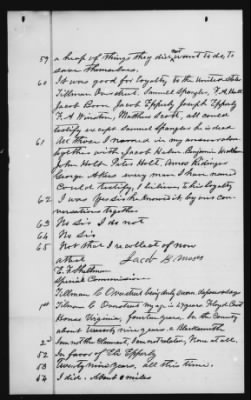 59 a heap of things they did not want to do, to
save themselves.
60 It was good for loyalty to the United States
Tillman Overstreet. Samuel Spangler, F. A. Hall
Jacob Boon Jacob Epperly Joseph Epperly
F. A Winston, Matthew Scott, all could
testify except Samuel Spangler he is dead
61 All those I named in my
together with Jacob Helm Benjamin
John Holt Peter Holt, Amos Ridinger
George Akers every man I have named
Could testify, I believe, to his loyalty
62 I was Yes Sir knowed it by our con-
versations together
63 No Sir I do not
64 No Sir
65 Not that I recollect of now
attest Jacob B. Moses
Special Commissioner
Tillman C Overstreet being duly sworn deposes & says
1st Tillman C Overstreet my age is 47 years Floyd Court
House Virginia, fourteen years. In the County
about Twenty nine years. a Blacksmith
2d I am not the claimant, I am not relation, None at all.
52 In favor of the Epperly
53 Twenty nine years, all this time.
54 I did. About 2 miles